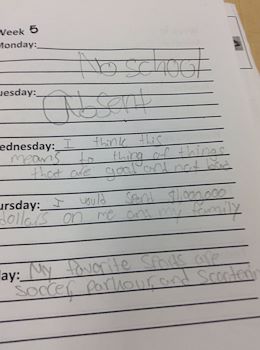 Week 5
Monday:
No school
uesday:
Absent
ednesday: I think this
means to thing of things
that are good and not bad
ursday: I would send $1,000,000
dollars on me and my family
ay: My favorite Sports are
soccer, parkour, and